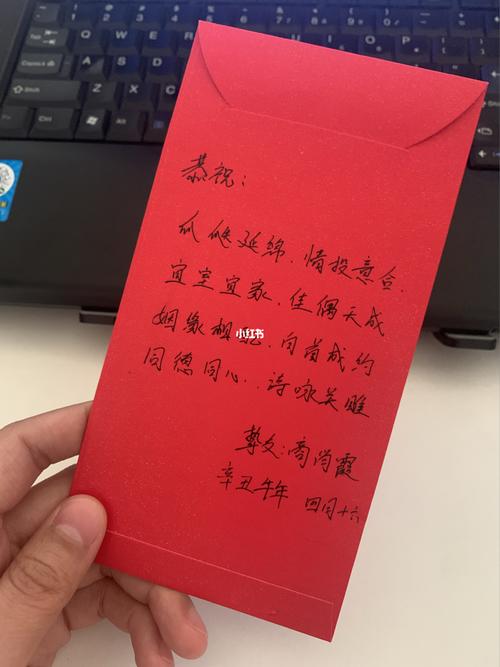 Q W E R
CapsLock A
Shift Z X C
Ctrl Fn Alt
恭祝：
瓜瓞延绵.情投意合.
宜室宜家.佳偶天成
姻缘相.白首成约
小红书
同德同心..诗咏关雎
挚友:商尚霞
辛丑牛年 四月十六